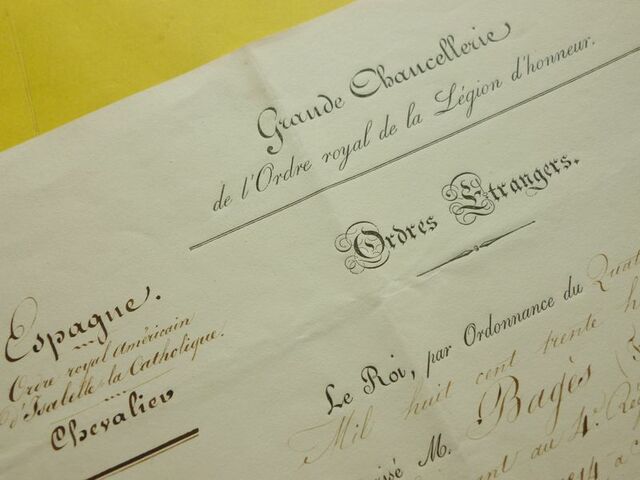 Grande Chancellerie
de l'Ordre royal de la Légion d'honneur.
Ordres Etrangers.
Espagne.
Ordre royal Américain
d'Isabelle la Catholique.
Chevalier
Le Roi, par Ordonnance du Quat
Mil huit cent trente h
M. Bagès
au 4e Ré